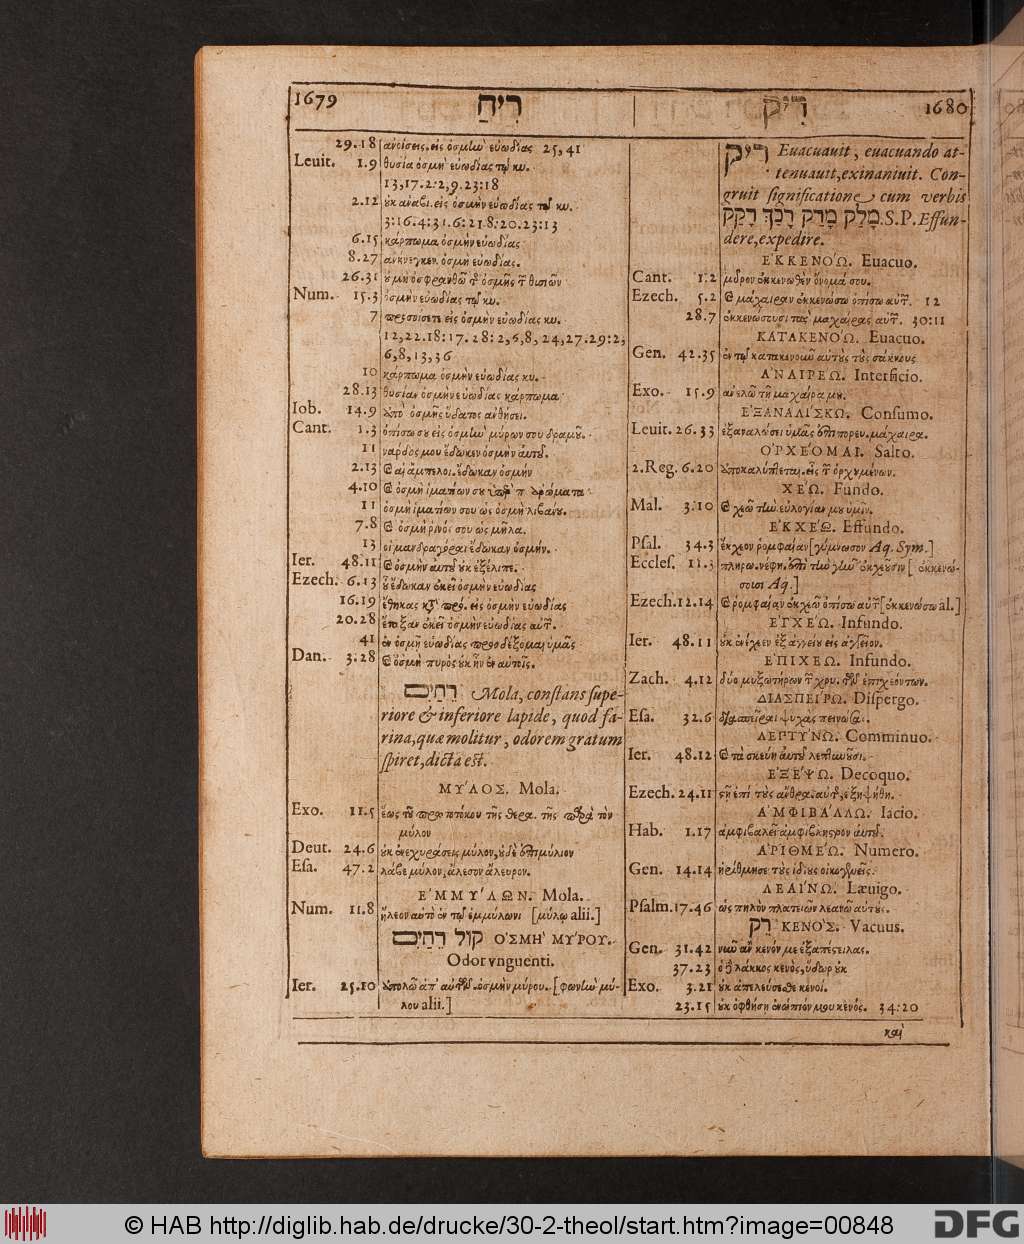 1679 רִיחַ
29.18 ἀνοίσεις. εἰς ὀσμὴν εὐωδίας 25,41
Leuit. 1.9 θυσία ὀσμὴ εὐωδίας τῷ κυ.
13,17.2:2,9.23:18
2.12 οὐκ ἀναβι. εἰς ὀσμὴν εὐωδίας τῷ κυ.
3:16.4:31.6:21.8:20.23:13
6.15 κάρπωμα ὀσμὴν εὐωδίας
8.27 ὀσμὴ εὐωδίας.
26.31 οὐ μὴ ὀσφρανθῶ τῆς ὀσμῆς τῶν θυσιῶν
Num. 15.3 ὀσμὴν εὐωδίας τῷ κυ.
7 προσοίσετε εἰς ὀσμὴν εὐωδίας κυ.
12,22.18:17.28:2,6,8,24,27.29:2,
6,8,13,36
10 κάρπωμα ὀσμὴν εὐωδίας κυ.
28.13 θυσίαν ὀσμὴν εὐωδίας κάρπωμα
Iob. 14.9 ἀπὸ ὀσμῆς ὕδατος ἀνθήσει.
Cant. 1.3 ὀπίσω σου εἰς ὀσμὴν μύρων σου δραμοῦ.
11 νάρδος μου ἔδωκεν ὀσμὴν αὐτοῦ.
2.13 καὶ αἱ ἄμπελοι. ἔδωκαν ὀσμὴν
4.10 καὶ ὀσμὴ ἱματίων σου ὑπὲρ π ἀρώματα
11 ὀσμὴ ἱματίων σου ὡς ὀσμὴ λιβάνου.
7.8 καὶ ὀσμὴ ῥινός σου ὡς μῆλα.
13 οἱ μανδραγόραι ἔδωκαν ὀσμήν.
Ier. 48.11 καὶ ὀσμὴν αὐτοῦ οὐκ ἐξέλιπε.
Ezech. 6.13 οὗ ἔδωκαν ἐκεῖ ὀσμὴν εὐωδίας
16.19 ἔθηκας κατὰ προ. εἰς ὀσμὴν εὐωδίας
20.28 ἔταξαν ἐκεῖ ὀσμὴν εὐωδίας αὐτῶν.
41 ἐν ὀσμῇ εὐωδίας προσδέξομαι ὑμᾶς
Dan. 3.28 καὶ ὀσμὴ πυρὸς οὐκ ἦν ἐν αὐτοῖς.
רֵחַיִם Mola, constans supe-
riore & inferiore lapide, quod fa-
rina, quæ molitur, odorem gratum
spiret, dicta est.
ΜΥ΄ΛΟΣ. Mola.
Exo. 11.5 ἕως τοῦ πρωτοτόκου τῆς θερα. τῆς παρὰ τὸν
μύλον
Deut. 24.6 οὐκ ἐνεχυράσεις μύλον, οὐδὲ ἐπιμύλιον
Esa. 47.2 λάβε μύλον, ἄλεσον ἄλευρον.
ΕΜΜΥ΄ΛΩΝ. Mola.
Num. 11.8 ἤλεον αὐτὸ ἐν τῷ ἐμμύλωνι [μύλῳ alii.]
קוֹל רֵחַיִם ΟΣΜΗ` ΜΥ΄ΡΟΥ.
Odor vnguenti.
Ier. 25.10 ἀπολῶ ἀπ' αὐτῶν. ὀσμὴν μύρου. [φωνὴν μύ-
λου alii.]
רִיק 1680
רִיק Euacuauit, euacuando at-
tenuauit, exinaniuit. Con-
gruit significatione cum verbis
מָלַק מָרַק רָכַךְ רָקַק. S.P. Effun-
dere, expedire.
ΕΚΚΕΝΟ΄Ω. Euacuo.
Cant. 1.2 μῦρον ἐκκενωθὲν ὄνομά σου.
Ezech. 5.2 καὶ μάχαιραν ἐκκενώσω ὀπίσω αὐτῶν. 12
28.7 ἐκκενώσουσι τὰς μαχαίρας αὐτῶν. 30:11
ΚΑΤΑΚΕΝΟ΄Ω. Euacuo.
Gen. 42.35 ἐν τῷ κατακενοῦν αὐτοὺς τοὺς σάκκους
ΑΝΑΙΡΕ΄Ω. Interficio.
Exo. 15.9 ἀνελῶ τῇ μαχαίρᾳ μου.
ΕΞΑΝΑΛΙ΄ΣΚΩ. Consumo.
Leuit. 26.33 ἐξαναλώσει ὑμᾶς ἐπιπορευ. μάχαιρα.
ΟΡΧΕ΄ΟΜΑΙ. Salto.
2.Reg. 6.20 ἀποκαλύπτεται. εἷς τῶν ὀρχουμένων.
ΧΕ΄Ω. Fundo.
Mal. 3.10 καὶ χεῶ τὴν εὐλογίαν μου ὑμῖν.
ΕΚΧΕ΄Ω. Effundo.
Psal. 34.3 ἔκχεον ῥομφαίαν [γύμνωσον Aq. Sym.]
Eccles. 11.3 πληρω. νέφη. ἐπὶ τὴν γῆν ἐκχέουσιν [ἐκκενώ-
σουσι Aq.]
Ezech. 12.14 καὶ ῥομφαίαν ἐκχεῶ ὀπίσω αὐτῶν [ἐκκενώσω al.]
ΕΓΧΕ΄Ω. Infundo.
Ier. 48.11 οὐκ ἐνέχεεν ἐξ ἀγγείου εἰς ἀγγεῖον.
ΕΠΙΧΕ΄Ω. Infundo.
Zach. 4.12 δύο μυξωτήρων τῶν χρυ. τῶν ἐπιχεόντων.
ΔΙΑΣΠΕΙ΄ΡΩ. Dispergo.
Esa. 32.6 διασπεῖραι ψυχὰς πεινώσας.
ΛΕΠΤΥ΄ΝΩ. Comminuo.
Ier. 48.12 καὶ τὰ σκεύη αὐτοῦ λεπτυνοῦσι.
ΕΞΕ΄ΨΩ. Decoquo.
Ezech. 24.11 στῇ ἐπὶ τοὺς ἄνθρα. αὐτῆς, ἐξηψήθη.
ΑΜΦΙΒΑ΄ΛΛΩ. Iacio.
Hab. 1.17 ἀμφιβαλεῖ ἀμφίβληστρον αὐτοῦ.
ΑΡΙΘΜΕ΄Ω. Numero.
Gen. 14.14 ἠρίθμησε τοὺς ἰδίους οἰκογενεῖς.
ΛΕΑΙ΄ΝΩ. Læuigo.
Psalm. 17.46 ὡς πηλὸν πλατειῶν λεανῶ αὐτούς.
רֵק ΚΕΝΟΣ. Vacuus.
Gen. 31.42 νῦν ἂν κενόν με ἐξαπέστειλας.
37.23 ὁ δὲ λάκκος κενὸς, ὕδωρ οὐκ
Exo. 3.21 οὐκ ἀπελεύσεσθε κενοί.
23.15 οὐκ ὀφθήσῃ ἐνώπιόν μου κενός. 34:20
καὶ
© HAB http://diglib.hab.de/drucke/30-2-theol/start.htm?image=00848
DFG